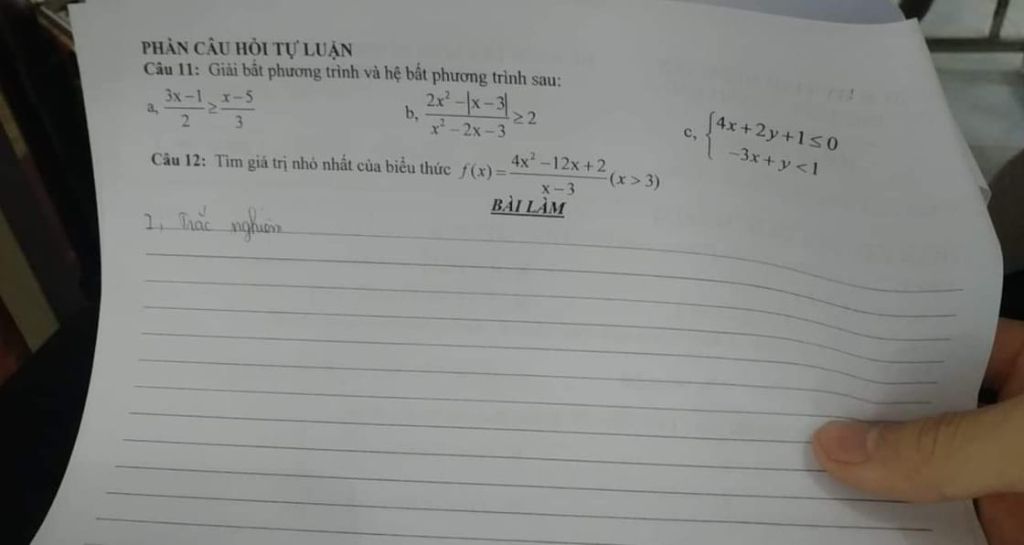 PHẦN CÂU HỎI TỰ LUẬN
Câu 11: Giải bất phương trình và hệ bất phương trình sau:
a, (3x-1)/2 ≥ (x-5)/3 b, (2x² - |x-3|)/(x² - 2x - 3) ≥ 2 c, { 4x+2y+1 ≤ 0
-3x+y < 1
Câu 12: Tìm giá trị nhỏ nhất của biểu thức f(x) = (4x² - 12x + 2)/(x-3) (x > 3)
BÀI LÀM
I, Trắc nghiệm